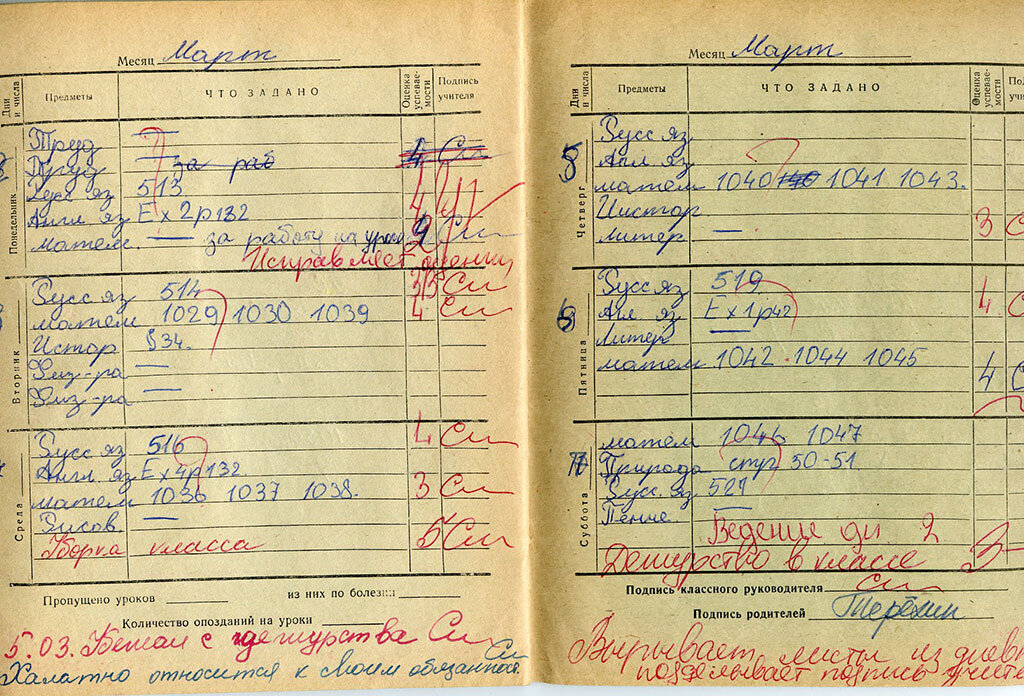 Месяц Март
Дни и числа Предметы ЧТО ЗАДАНО Оценка успевае-мости Подпись учителя
Понедельник
Труд —
Труд — за раб 4 См
Русс яз 513 4
Англ. яз Ex 2p132 4
матем — за работу на уроке 2 См
Исправляет оценки
Вторник
Русс яз 514 3/3 См
матем 1029 1030 1039 4 См
Истор §34.
Физ-ра —
Физ-ра —
Среда
Русс яз 516 4 См
Англ. яз Ex 4p132
матем 1036 1037 1038. 3 См
Рисов —
Уборка класса 5 См
Пропущено уроков из них по болезни
Количество опозданий на уроки
5.03. Бежал с дежурства См
Халатно относится к своим обязанност. См
Месяц Март
Дни и числа Предметы ЧТО ЗАДАНО Оценка успевае-мости По учи
Четверг 5
Русс яз
Англ яз
матем 1040 1041 1043.
Истор 3 С
Литер —
Пятница 6
Русс яз 519 4 С
Англ яз Ex 1p42
Литер —
матем 1042 1044 1045 4
Суббота
матем 1046 1047
Природа стр 50-51
Русс. яз 521
Пение. —
Ведение дн 2
Дежурство в классе 3-
Подпись классного руководителя См
Подпись родителей Терёхин
Вырывает листы из дневн
подделывает подпись учите